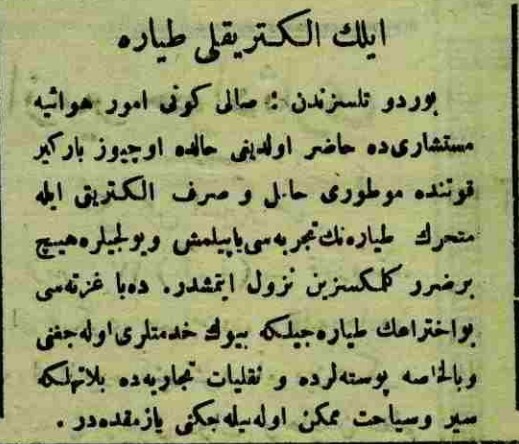 ایلك الكتریقلی طیاره
بوردو تلسزندن : صالی كونی امور هوائیه
مستشاری‌ده حاضر اولدیغی حالده اوچیوز باركیر
قوتنده موطوری حامل و صرف الكتریق ایله
متحرك طیاره‌نك تجربه‌سی یاپیلمش ویولجیلره هییچ
برضرر كلمكسزین نزول ایتمشدر. ده‌با غزته‌سی
بواختراعك طیاره‌جیلكه بیوك خدمتلری اوله‌جغنی
وبالخاصه پوسته‌لرده و نقلیات تجاریه‌ده بلاتهلكه
سیر وسیاحت ممكن اوله‌بیله‌جكنی یازمقده‌در .